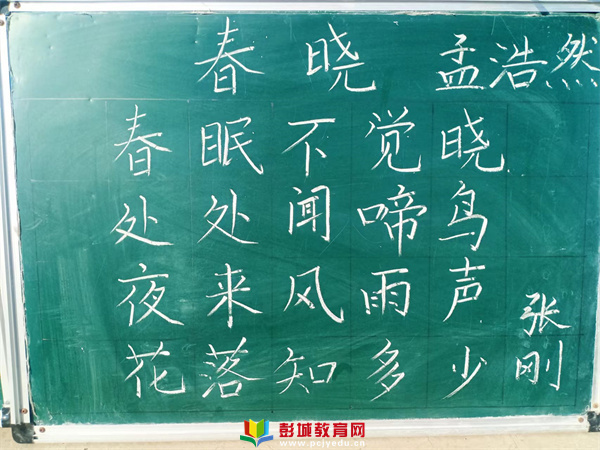 春晓 孟浩然
春眠不觉晓
处处闻啼鸟
夜来风雨声
花落知多少
张刚
彭城教育网
www.pcjyedu.cn